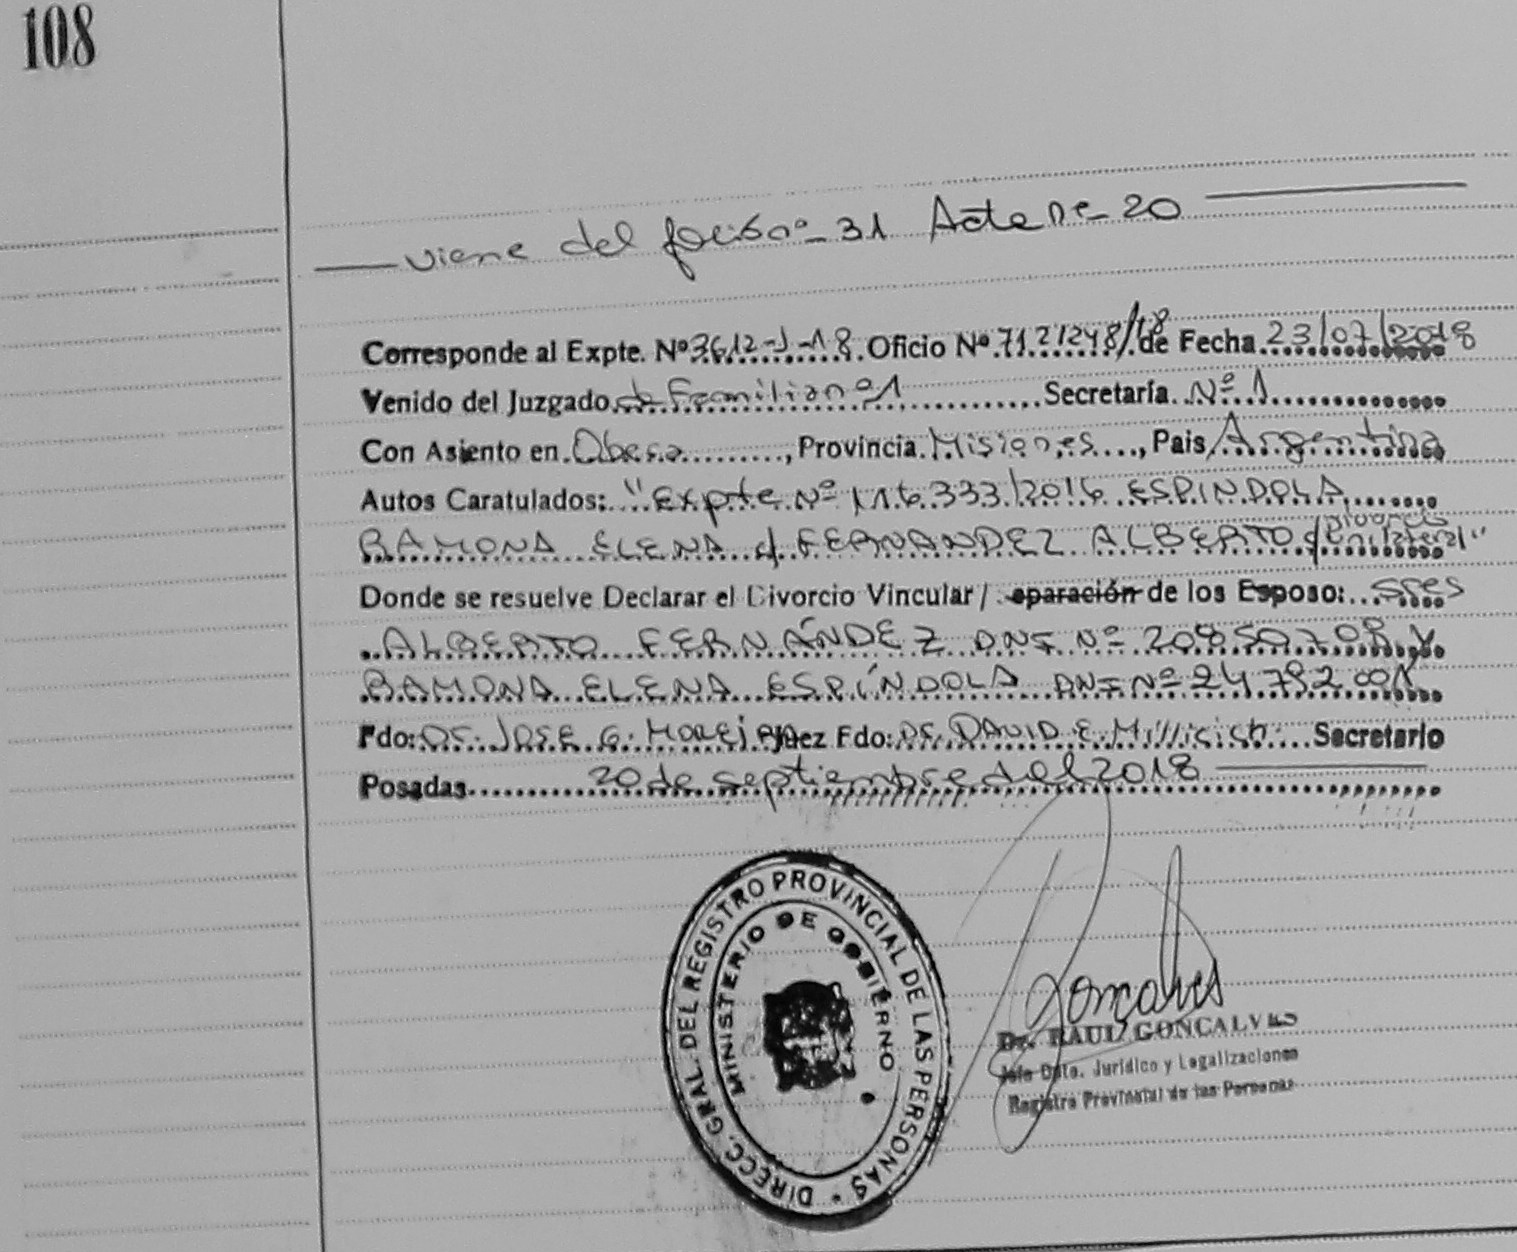 108
viene del folio nº 31 Acta Nº 20
Corresponde al Expte. Nº 3612-J-18 Oficio Nº 7121248/18 de Fecha 23/07/2018
Venido del Juzgado de Familia nº 1 Secretaría Nº 1
Con Asiento en Obera, Provincia Misiones, Pais Argentina
Autos Caratulados: "Expte Nº 116.333/2016 ESPINDOLA
RAMONA ELENA c/ FERNANDEZ ALBERTO s/ Divorcio Unilateral"
Donde se resuelve Declarar el Divorcio Vincular / eparación de los Esposo: sres
ALBERTO FERNÁNDEZ DNI Nº 20850708 y
RAMONA ELENA ESPÍNDOLA DNI Nº 24.792.001
Fdo: Dr. JOSE G. Juez Fdo: Dr. DAVID E. Millicich Secretario
Posadas 20 de septiembre del 2018
DIRECC. GRAL. DEL REGISTRO PROVINCIAL DE LAS PERSONAS
MINISTERIO DE GOBIERNO
Goncalves
Dr. RAUL GONCALVES
Jefe Dpto. Jurídico y Legalizaciones
Registro Provincial de las Personas